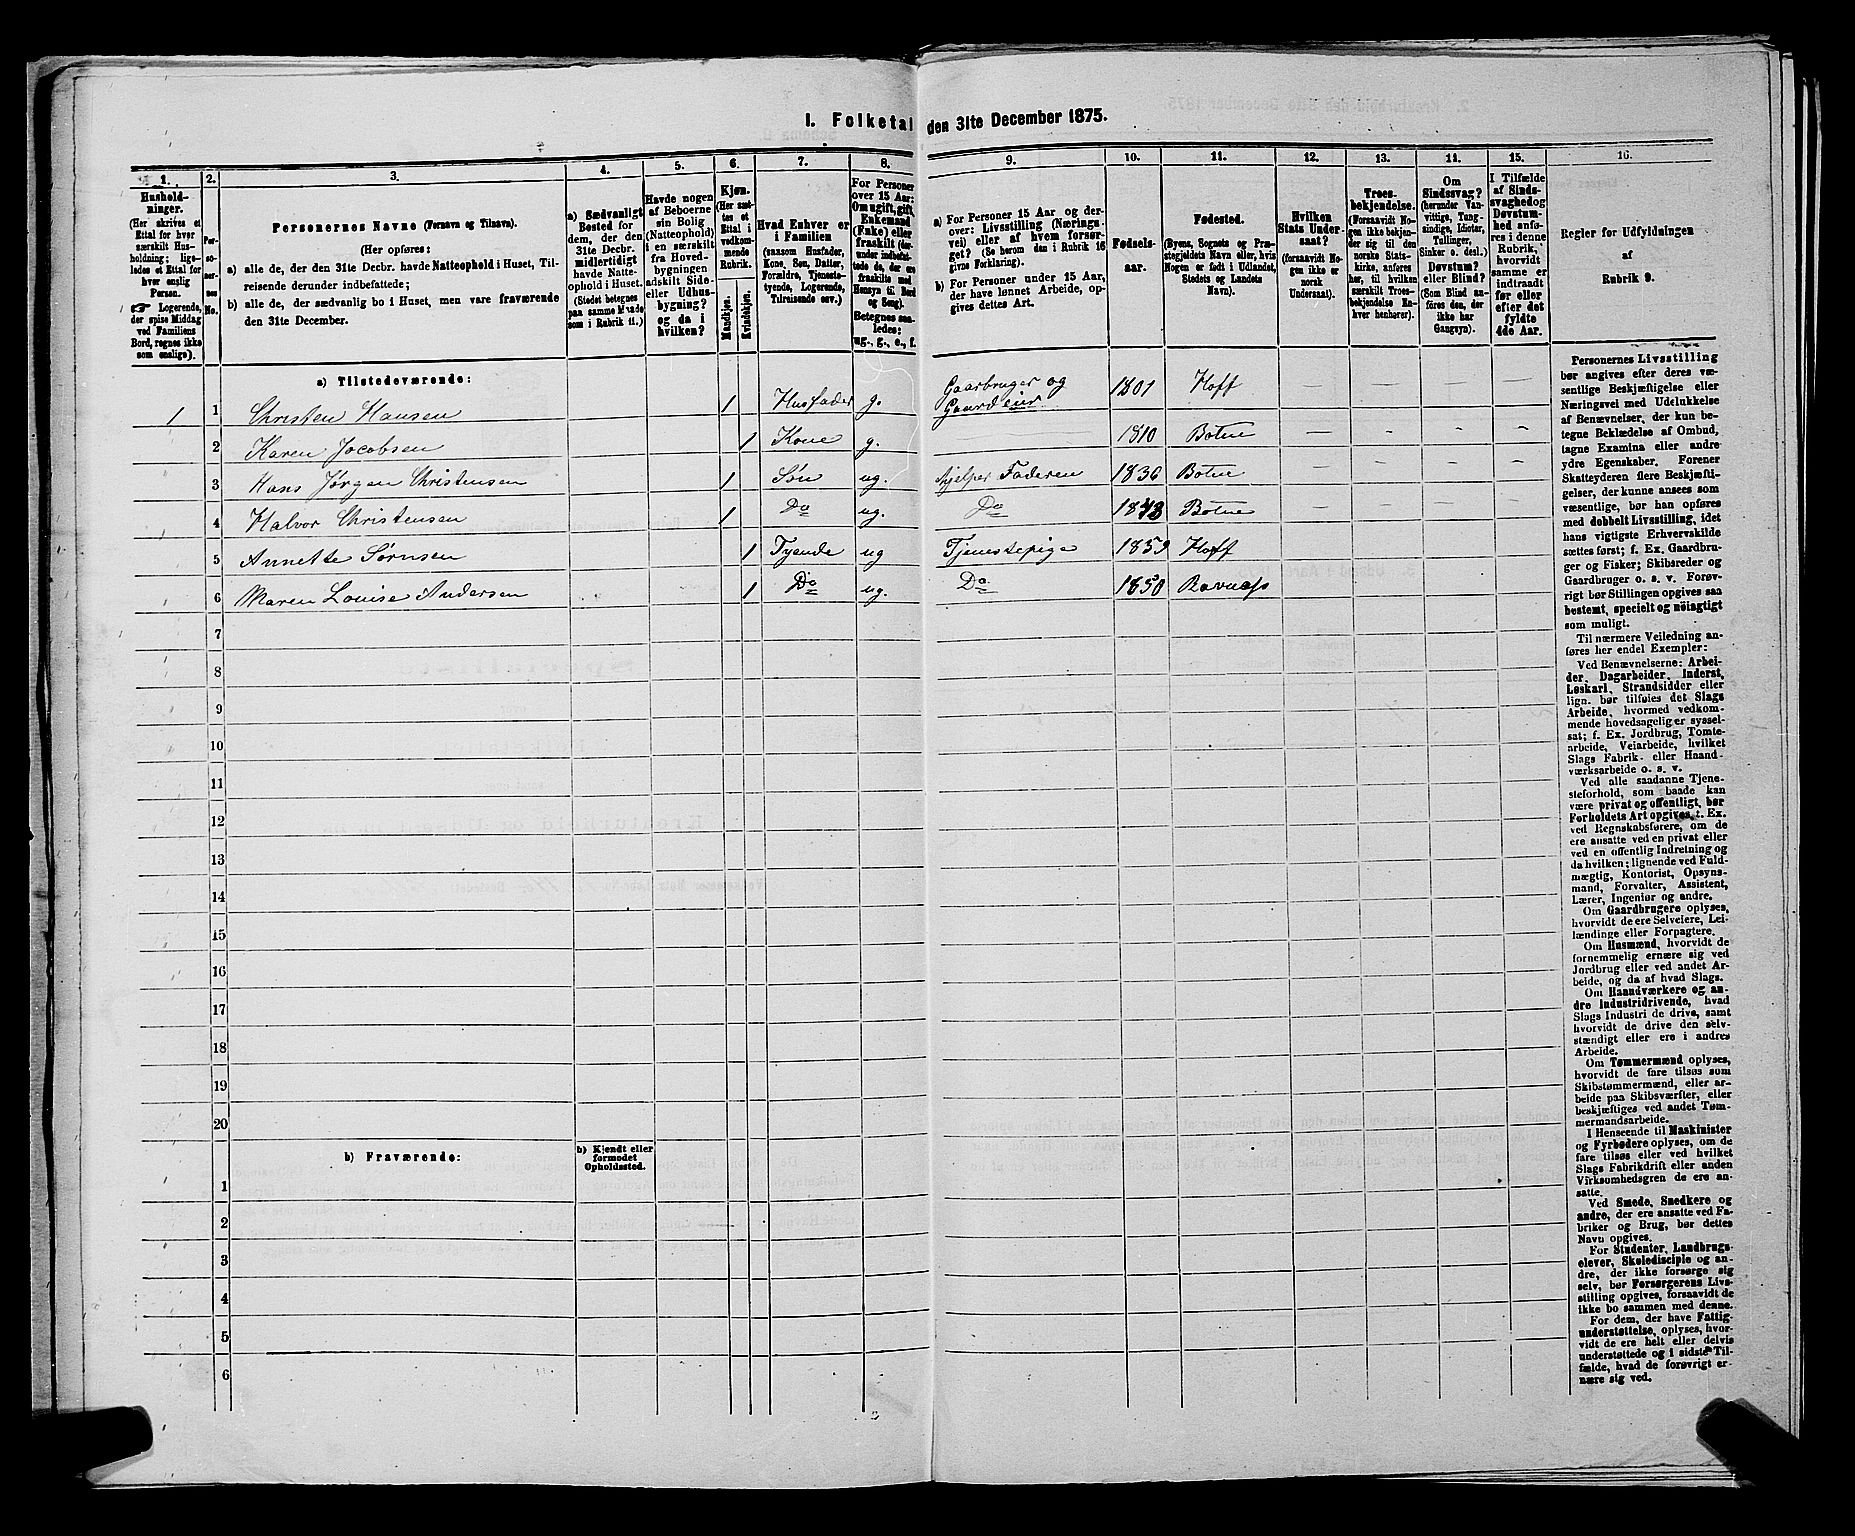 I. Folketal den 31te December 1875.
1.
2.
3.
4.
5.
6.
7.
8.
9.
10.
11.
12.
13.
14.
15.
16.
Hushold-
ninger.
(Her skrives et
Ettal for hver
særskilt Hus-
holdning; lige-
ledes et Ettal for
hver enslig
Person.
☞ Logerende,
der spise Middag
ved Familiens
Bord, regnes ikke
som enslige).
Per-
so-
ner-
nes
No.
Personernes Navne (Fornavn og Tilnavn).
(Her opføres:
a) alle de, der den 31te Decbr. havde Natteophold i Huset, Til-
reisende derunder indbefattede;
b) alle de, der sædvanlig bo i Huset, men vare fraværende
den 31te December.
a) Sædvanligt
Bosted for
dem, der den
31te Decbr.
midlertidigt
havde Natte-
ophold i Huset.
(Stedet betegnes
paa samme Maade
som i Rubrik 11.)
Havde nogen
af Beboerne
sin Bolig
(Natteophold)
i en særskilt
fra Hoved-
bygningen
adskilt Side-
eller Udhus-
bygning?
og da i
hvilken?
Kjøn.
(Her sæt-
tes et
Ettal i
vedkom-
mende
Rubrik.
Mandkjøn.
Kvindekjøn.
Hvad Enhver er
i Familien
(saasom Husfader,
Kone, Søn, Datter,
Forældre, Tjeneste-
tyende, Logerende,
Tilreisende osv.)
For Personer
over 15 Aar:
Om ugift, gift,
Enkemand
(Enke) eller
fraskilt (der-
under indbefat-
tede de, der ere
fraskilte med
Hensyn til Bord
og Seng).
Betegnes saa-
ledes:
ug., g., e., f.
a) For Personer 15 Aar og der-
over: Livsstilling (Nærings-
vei) eller af hvem forsør-
get? (Se herom den i Rubrik 16
givne Forklaring).
b) For Personer under 15 Aar,
der have lønnet Arbeide, op-
gives dettes Art.
Fødsels-
aar.
Fødested.
(Byens, Sognets og Præ-
stegjeldets Navn eller, hvis
Nogen er født i Udlandet,
Stedets og Landets
Navn).
Hvilken
Stats Under-
saat?
(forsaavidt No-
gen ikke er
norsk
Undersaat).
Troes-
bekjendelse.
(Forsaavidt No-
gen ikke bekjen-
der sig til den
norske Stats-
kirke, anføres
her, til hvilken
særskilt Troes-
bekjendelse En-
hver henhører).
Om
Sindssvag?
(herunder Van-
vittige, Tung-
sindige, Idioter,
Tullinger,
Sinker o. desl.)
Døvstum?
eller Blind?
(Som Blind an-
føres den, der
ikke har
Gangsyn).
I Tilfælde
af Sinds-
svaghed og
Døvstum-
hed anfø-
res i denne
Rubrik,
hvorvidt
samme er
indtraadt
før eller
efter det
fyldte
4de Aar.
Regler for Udfyldningen
af
Rubrik 9.
a) Tilstedeværende:
1 1 Christen Hansen 1 Husfader g. Gaarbruger og Gaardeier 1801 Hoff — — — —
2 Karen Jocobsen 1 Kone g. 1810 Botne — — — —
3 Hans Jørgen Christensen 1 Søn ug. hjelper Faderen 1836 Botne — — — —
4 Halvor Christensen 1 Do ug. Do 1843 Botne — — — —
5 Annette Sørnsen 1 Tyende ug Tjenestepige 1859 Hoff
6 Maren Louise Andersen 1 Do ug. Do 1850 Ravnæs
7
8
9
10
11
12
13
14
15
16
17
18
19
20
b) Fraværende:
b) Kjendt eller
formodet
Opholdssted.
1
2
3
4
5
6
Personernes Livsstilling
bør angives efter deres væ-
sentlige Beskjæftigelse eller
Næringsvei med Udelukkelse
af Benævnelser, der kun be-
tegne Beklædelse af Ombud,
tagne Examina eller andre
ydre Egenskaber. Forener
Skatteyderen flere Beskjæfti-
gelser, der kunne ansees som
væsentlige, bør han opføres
med dobbelt Livsstilling, idet
hans vigtigste Erhvervskilde
sættes først; f. Ex. Gaardbru-
ger og Fisker; Skibsreder og
Gaardbruger o. s. v. Forøv-
rigt bør Stillingen opgives saa
bestemt, specielt og nøiagtigt
som muligt.
Til nærmere Veiledning an-
føres her endel Exempler:
Ved Benævnelserne: Arbei-
der, Dagarbeider, Inderst,
Løskarl, Strandsidder eller
lign. bør tilføies det Slags
Arbeide, hvormed vedkom-
mende hovedsagelig er syssel-
sat; f. Ex. Jordbrug, Tomte-
arbeide, Veiarbeide, hvilket
Slags Fabrik- eller Haand-
værksarbeide o. s. v.
Ved alle saadanne Tjene-
steforhold, som baade kan
være privat og offentligt, bør
Forholdets Art opgives, f. Ex.
ved Regnskabsførere, om de
ere ansatte ved en privat eller
ved en offentlig Indretning og
da hvilken; lignende ved Fuld-
mægtig, Kontorist, Opsyns-
mand, Forvalter, Assistent,
Lærer, Ingeniør og andre.
Om Gaardbrugere oplyses,
hvorvidt de ere Selveiere, Lei-
lændinge eller Forpagtere.
Om Husmænd, hvorvidt de
fornemmelig ernære sig ved
Jordbrug eller ved andet Ar-
beide, og da af hvad Slags.
Om Haandværkere og an-
dre Industridrivende, hvad
Slags Industri de drive, samt
hvorvidt de drive den selv-
stændigt eller ere i andres
Arbeide.
Om Tømmermænd oplyses,
hvorvidt de fare tilsøs som
Skibstømmermænd, eller ar-
beide paa Skibsværfter, eller
beskjæftiges ved andet Tøm-
mermandsarbeide.
I Henseende til Maskinister
og Fyrbødere oplyses, om de
fare tilsøs eller ved hvilket
Slags Fabrikdrift eller anden
Virksomhedsgren de ere an-
satte.
Ved Smede, Snedkere og
andre, der ere ansatte ved Fa-
briker og Brug, bør dettes
Navn opgives.
For Studenter, Landbrugs-
elever, Skoledisciple og an-
dre, der ikke forsørge sig
selv, bør Forsørgerens Livs-
stilling opgives, forsaavidt de
ikke bo sammen med denne.
For dem, der have Fattig-
understøttelse, oplyses, hvor-
vidt de ere helt eller delvis
understøttede og i sidste Til-
fælde, hvad de forøvrigt er-
nære sig ved.